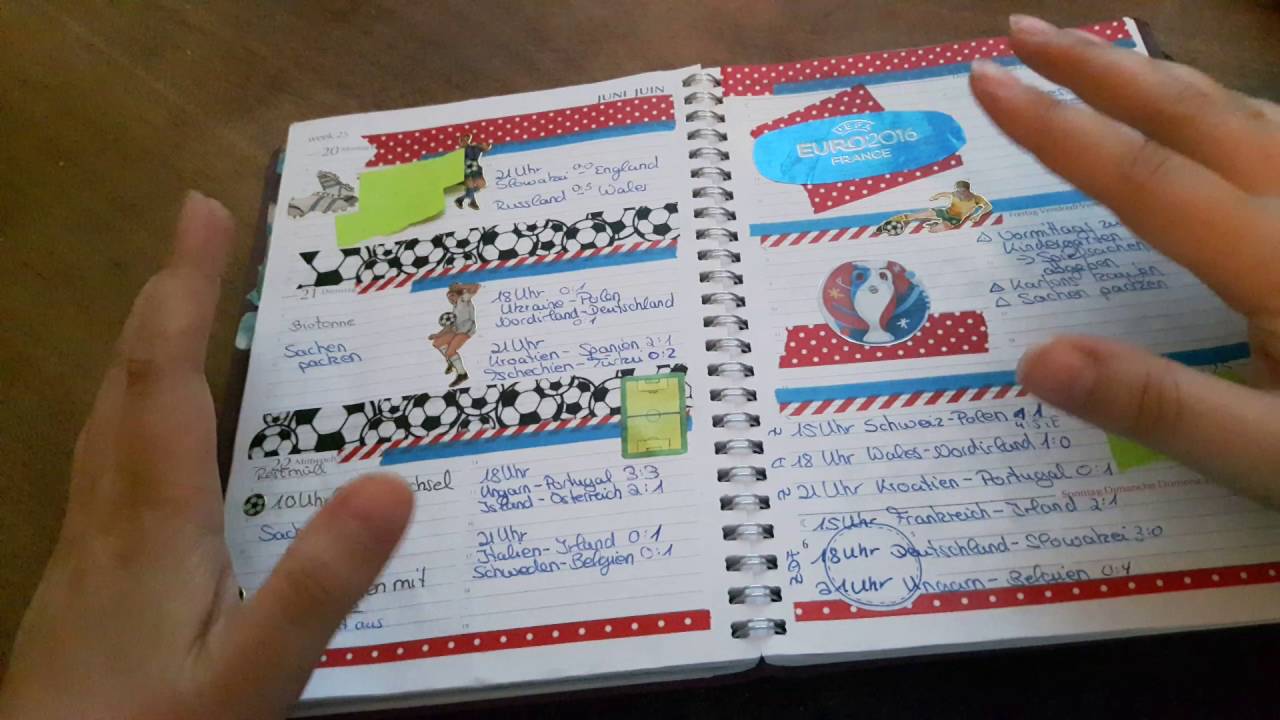 JUNI JUIN
week 25
20
21 Uhr 0:0
Slowakei - England
Russland 0:3 Wales
21
Biotonne
Sachen
packen
18 Uhr 0:1
Ukraine-Polen
Nordirland-Deutschland
0:1
21 Uhr
Kroatien - Spanien 2:1
Tschechien - Türkei 0:2
22 Mittwoch
Restmüll
10 Uhr
18 Uhr
Ungarn-Portugal 3:3
Island-Österreich 2:1
21 Uhr
Italien-Irland 0:1
Schweden-Belgien 0:1
mit
aus
UEFA
EURO2016
FRANCE
Freitag
△ Vormittag
Kindergarten
→ Spielsachen
abgeben
△ Kartons
△ Sachen packen
15 Uhr Schweiz-Polen
18 Uhr Wales-Nordirland 1:0
21 Uhr Kroatien-Portugal 0:1
Sonntag Dimanche
15 Uhr Frankreich-Irland 2:1
18 Uhr Deutschland-Slowakei 3:0
21 Uhr Ungarn-Belgien 0:4